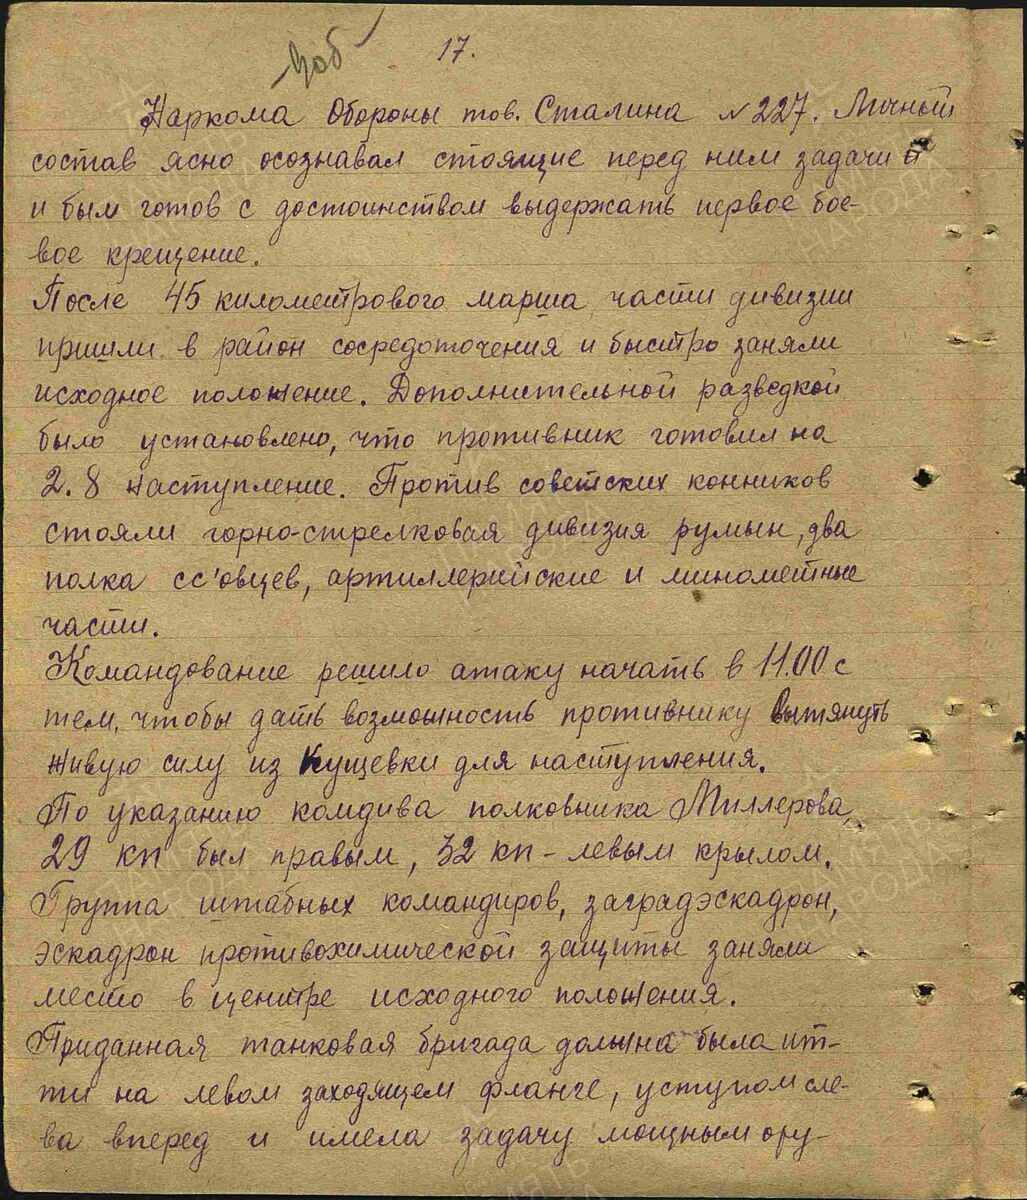 17.
Наркома Обороны тов. Сталина №227. Личный
состав ясно осознавал стоящие перед ним задачи
и был готов с достоинством выдержать первое бое-
вое крещение.
После 45 километрового марша, части дивизии
пришли в район сосредоточения и быстро заняли
исходное положение. Дополнительной разведкой
было установлено, что противник готовил на
2.8 наступление. Против советских конников
стояли горно-стрелковая дивизия румын, два
полка сс'овцев, артиллерийские и минометные
части.
Командование решило атаку начать в 11.00 с
тем, чтобы дать возможность противнику вытянуть
живую силу из Кущевки для наступления.
По указанию комдива полковника Миллерова,
29 кп был правым, 32 кп - левым крылом.
Группа штабных командиров, заградэскадрон,
эскадрон противохимической защиты заняли
место в центре исходного положения.
Приданная танковая бригада должна была ит-
ти на левом заходящем фланге, уступом сле-
ва вперед и имела задачу мощным ору-
ПАМЯТЬ
НАРОДА